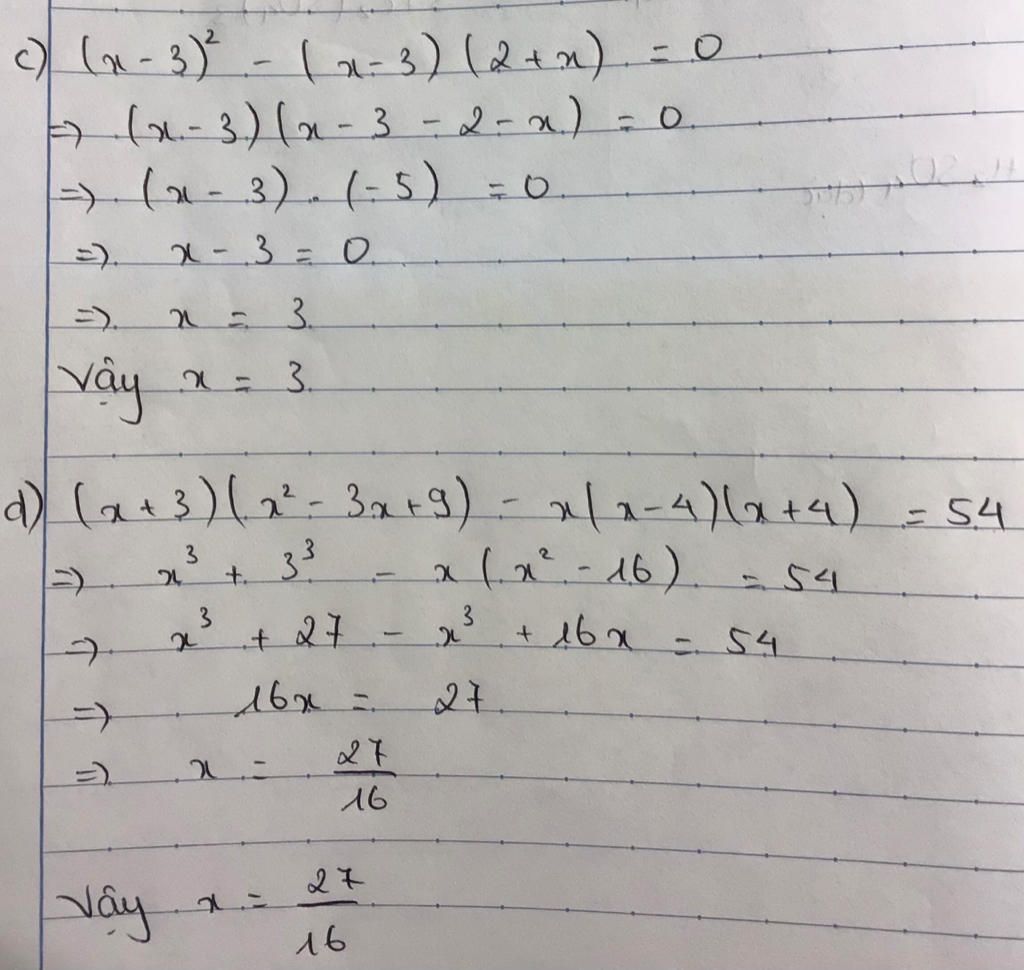 c) (x - 3)² - (x - 3)(2 + x) = 0
=> (x - 3)(x - 3 - 2 - x) = 0
=> (x - 3) . (-5) = 0
=> x - 3 = 0
=> x = 3
Vậy x = 3
d) (x + 3)(x² - 3x + 9) - x(x - 4)(x + 4) = 54
=> x³ + 3³ - x(x² - 16) = 54
=> x³ + 27 - x³ + 16x = 54
=> 16x = 27
=> x = 27/16
Vậy x = 27/16